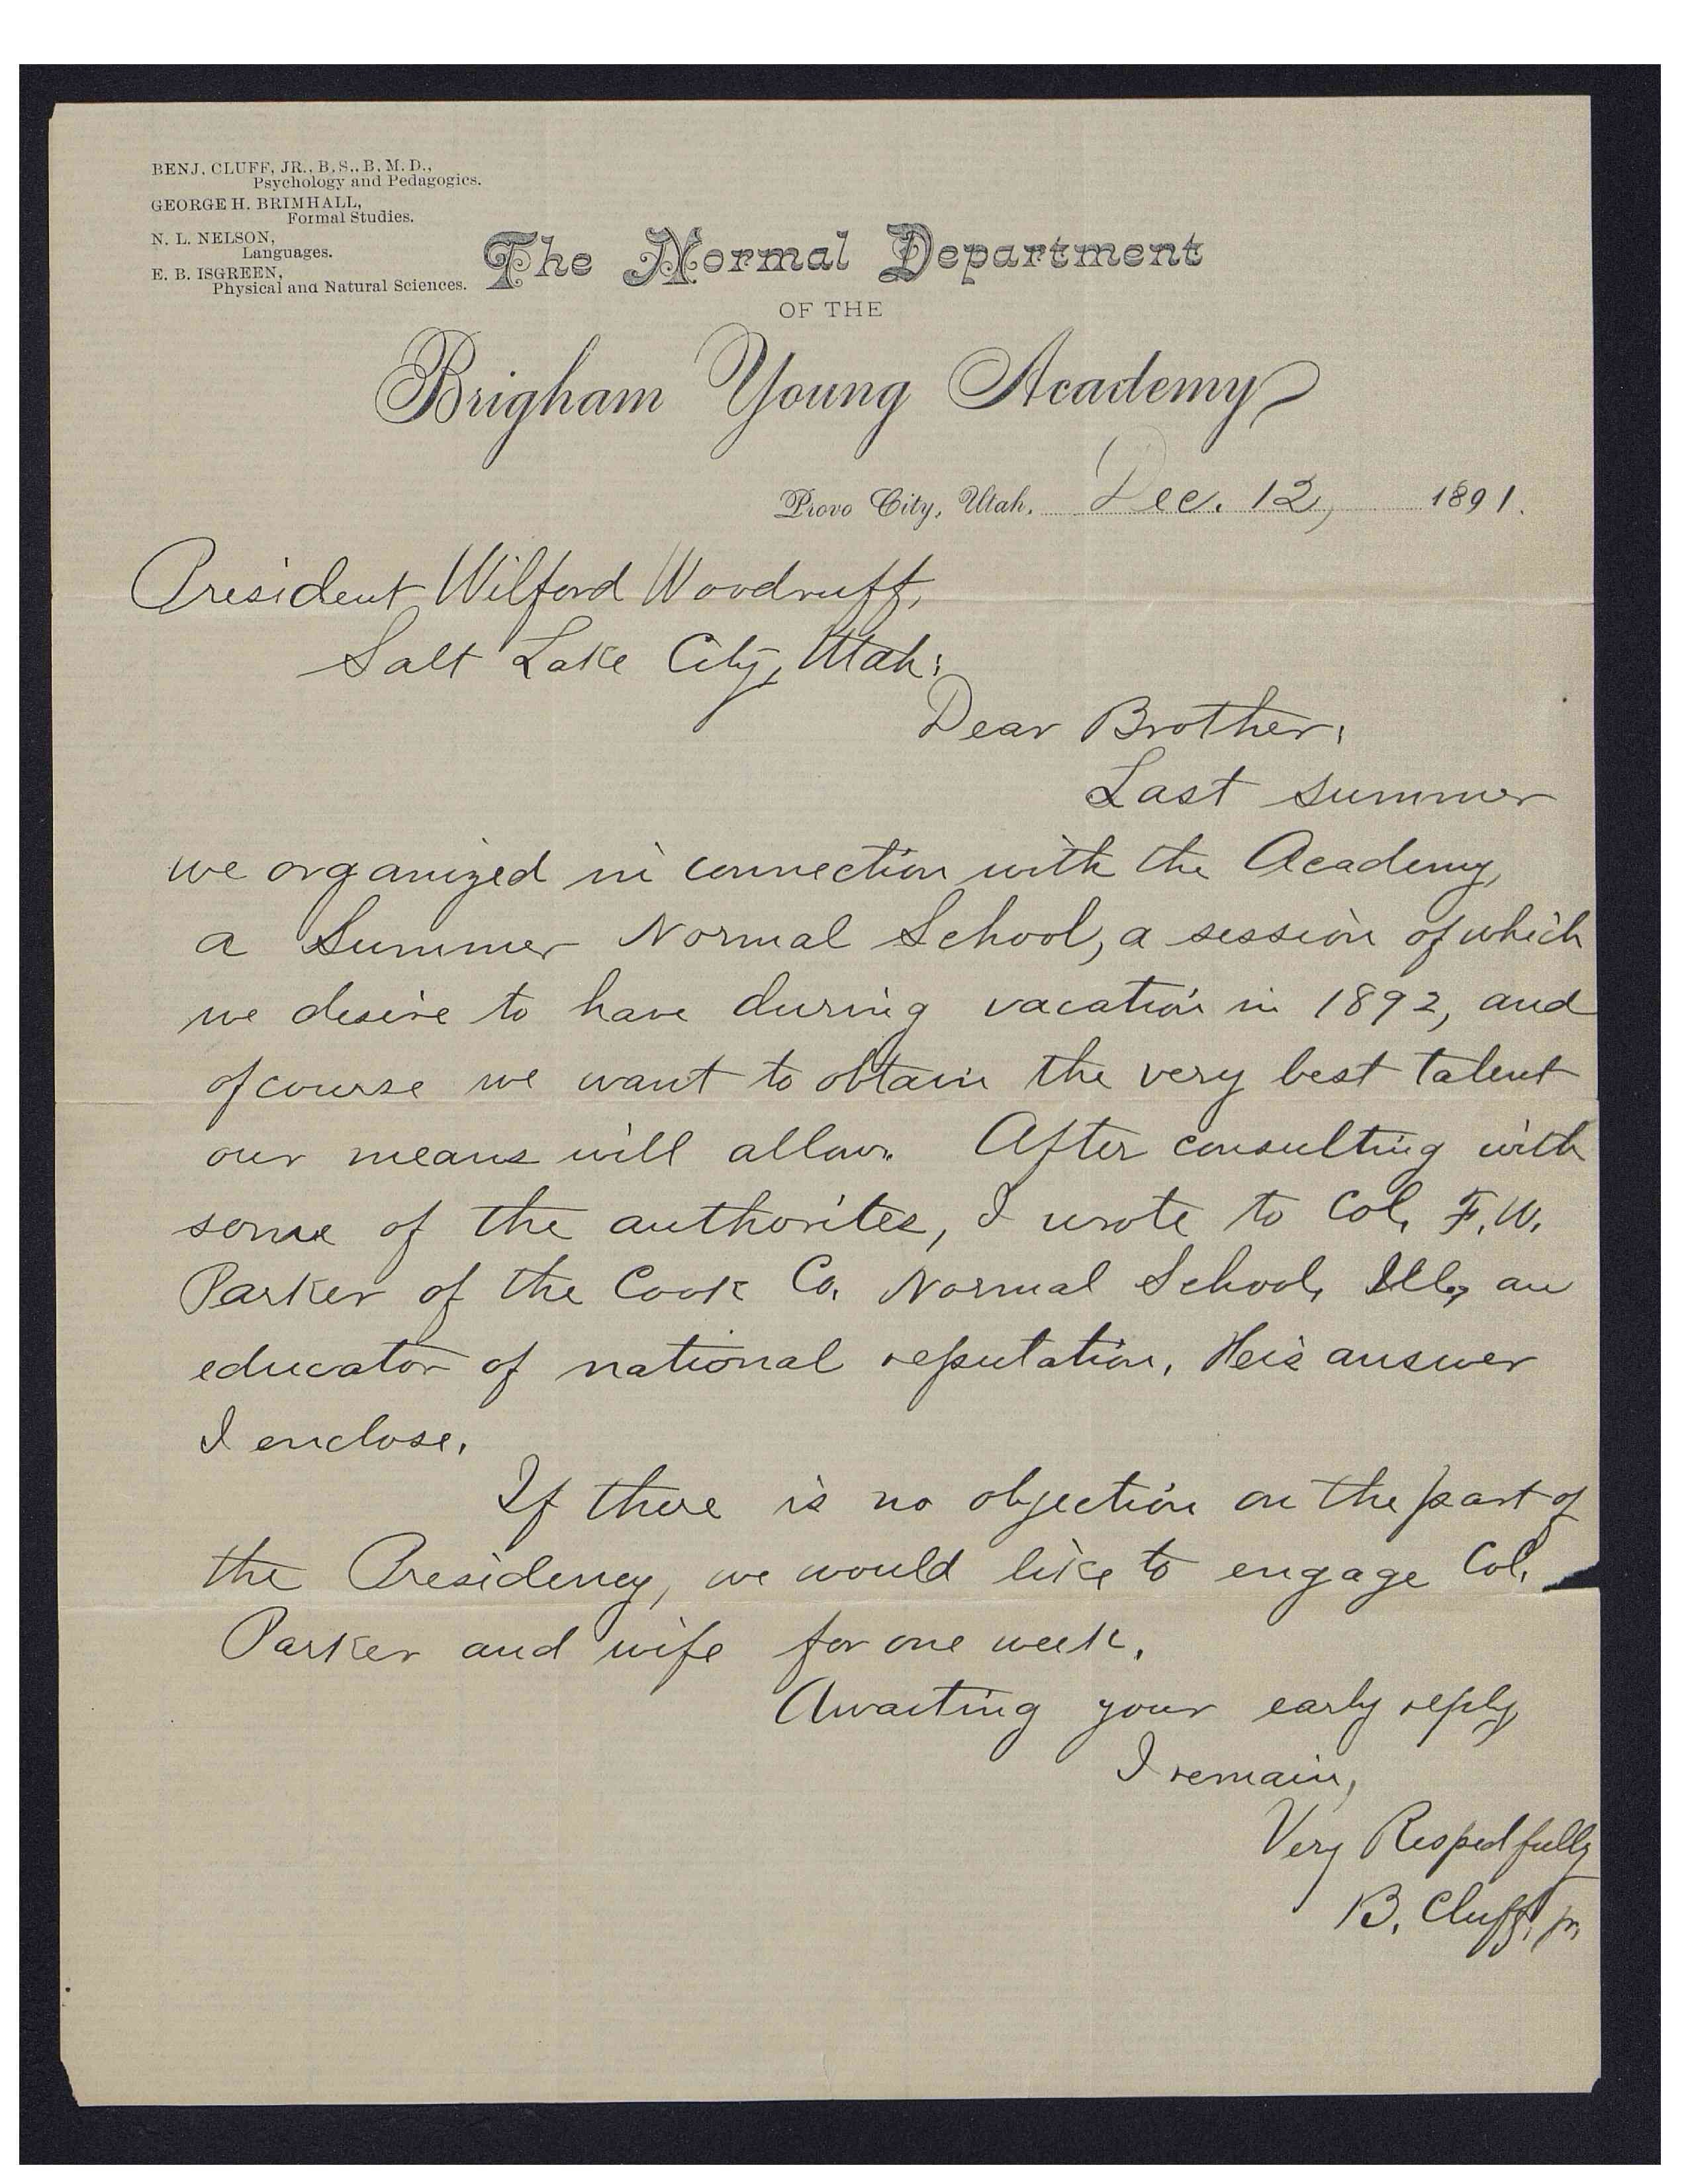 BENJ. CLUFF, JR., B.S., B.M.D.,
Psychology and Pedagogics.
GEORGE H. BRIMHALL,
Formal Studies.
N. L. NELSON,
Languages.
E. B. ISGREEN,
Physical and Natural Sciences.
The Normal Department
OF THE
Brigham Young Academy
Provo City, Utah, Dec. 12, 1891.
President Wilford Woodruff,
Salt Lake City, Utah:
Dear Brother:
Last summer
we organized in connection with the Academy,
a Summer Normal School, a session of which
we desire to have during vacation in 1892, and
of course we want to obtain the very best talent
our means will allow. After consulting with
some of the authorites, I wrote to Col. F. W.
Parker of the Cook Co. Normal School, Ill., an
educator of national reputation. Heis answer
I enclose.
If there is no objection on the part of
the Presidency, we would like to engage Col.
Parker and wife for one week.
Awaiting your early reply
I remain,
Very Respectfully
B. Cluff, Jr.